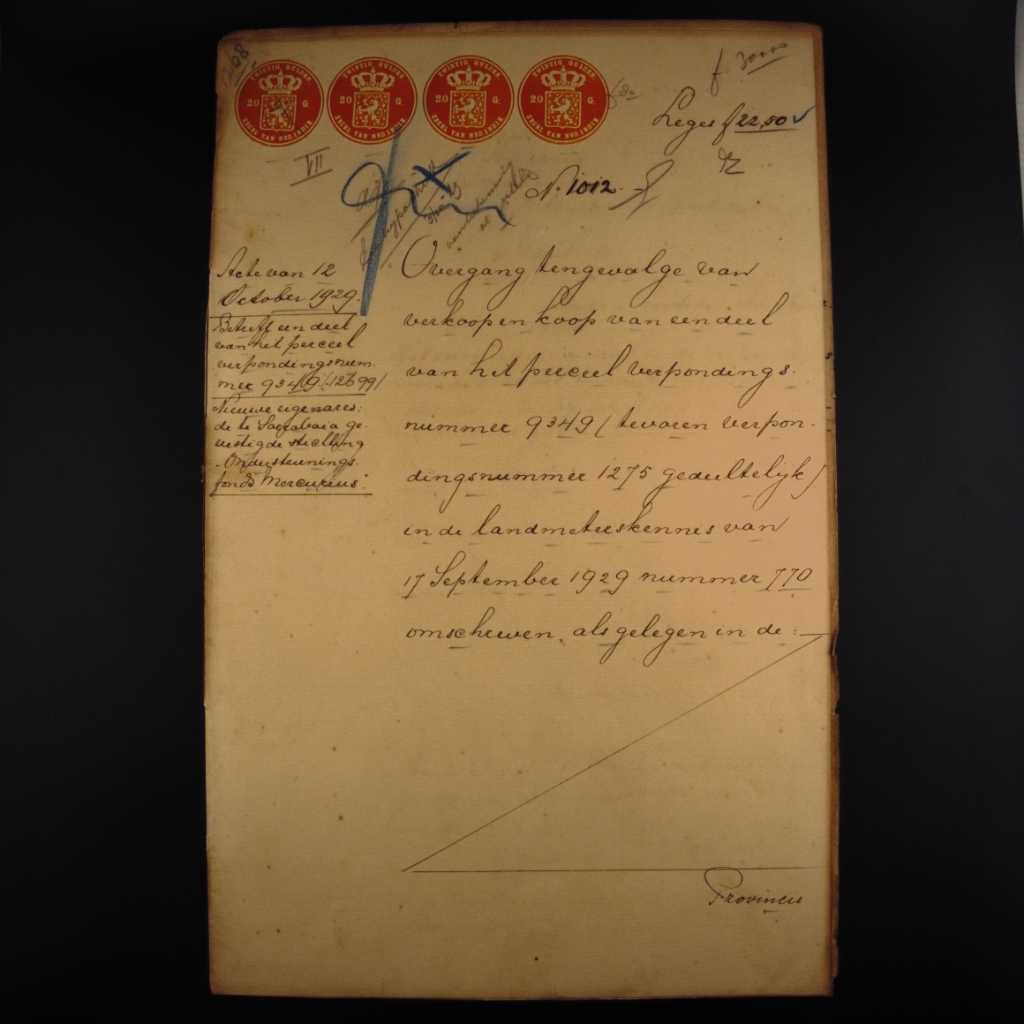 TWINTIG GULDEN
20 G.
ZEGEL VAN NED. INDIË
TWINTIG GULDEN
20 G.
ZEGEL VAN NED. INDIË
TWINTIG GULDEN
20 G.
ZEGEL VAN NED. INDIË
TWINTIG GULDEN
20 G.
ZEGEL VAN NED. INDIË
f 80
Leges f 22,50
VII
N. 1012.
Acte van 12
October 1929.
Betreft een deel
van het perceel
verpondingsnum-
mer 9349 (12699)
Nieuwe eigenares:
de te Soerabaia ge-
vestigde stichting
"Ondersteunings-
fonds Mercurius".
Overgang tengevolge van
verkoop en koop van een deel
van het perceel verpondings-
nummer 9349 (tevoren verpon-
dingsnummer 1275 gedeeltelijk)
in de landmeterskennis van
17 September 1929 nummer 770
omschreven, als gelegen in de:
Provincie